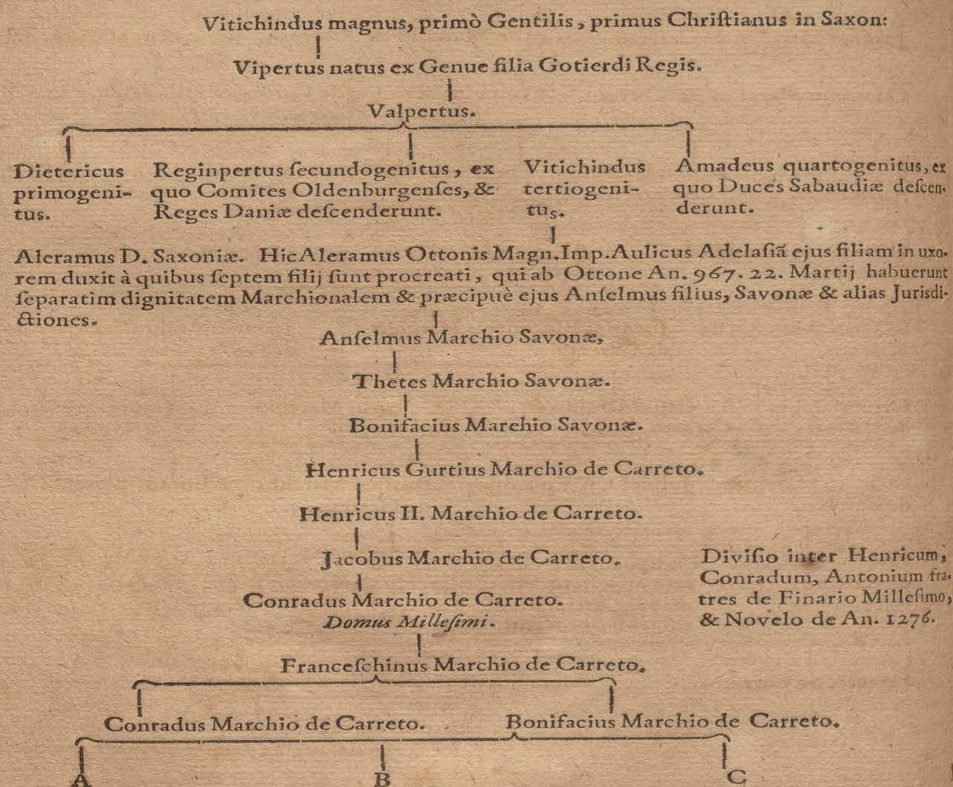 Vitichindus magnus, primò Gentilis, primus Chriſtianus in Saxon:
Vipertus natus ex Genue filia Gotierdi Regis.
Valpertus.
Dietericus
primogeni-
tus.
Reginpertus ſecundogenitus, ex
quo Comites Oldenburgenſes, &
Reges Daniæ deſcenderunt.
Vitichindus
tertiogeni-
tus.
Amadeus quartogenitus, ex
quo Duces Sabaudiæ deſcen-
derunt.
Aleramus D. Saxoniæ. Hic Aleramus Ottonis Magn. Imp. Aulicus Adelaſiã ejus filiam in uxo-
rem duxit à quibus ſeptem filij ſunt procreati, qui ab Ottone An. 967. 22. Martij habuerunt
ſeparatim dignitatem Marchionalem & præcipuè ejus Anſelmus filius, Savonæ & alias Jurisdi-
ctiones.
Anſelmus Marchio Savonæ,
Thetes Marchio Savonæ.
Bonifacius Marchio Savonæ.
Henricus Gurtius Marchio de Carreto.
Henricus II. Marchio de Carreto.
Jacobus Marchio de Carreto.
Conradus Marchio de Carreto.
Domus Milleſimi.
Diviſio inter Henricum,
Conradum, Antonium fra-
tres de Finario Milleſimo,
& Novelo de An. 1276.
Franceſchinus Marchio de Carreto.
Conradus Marchio de Carreto. Bonifacius Marchio de Carreto.
A B C